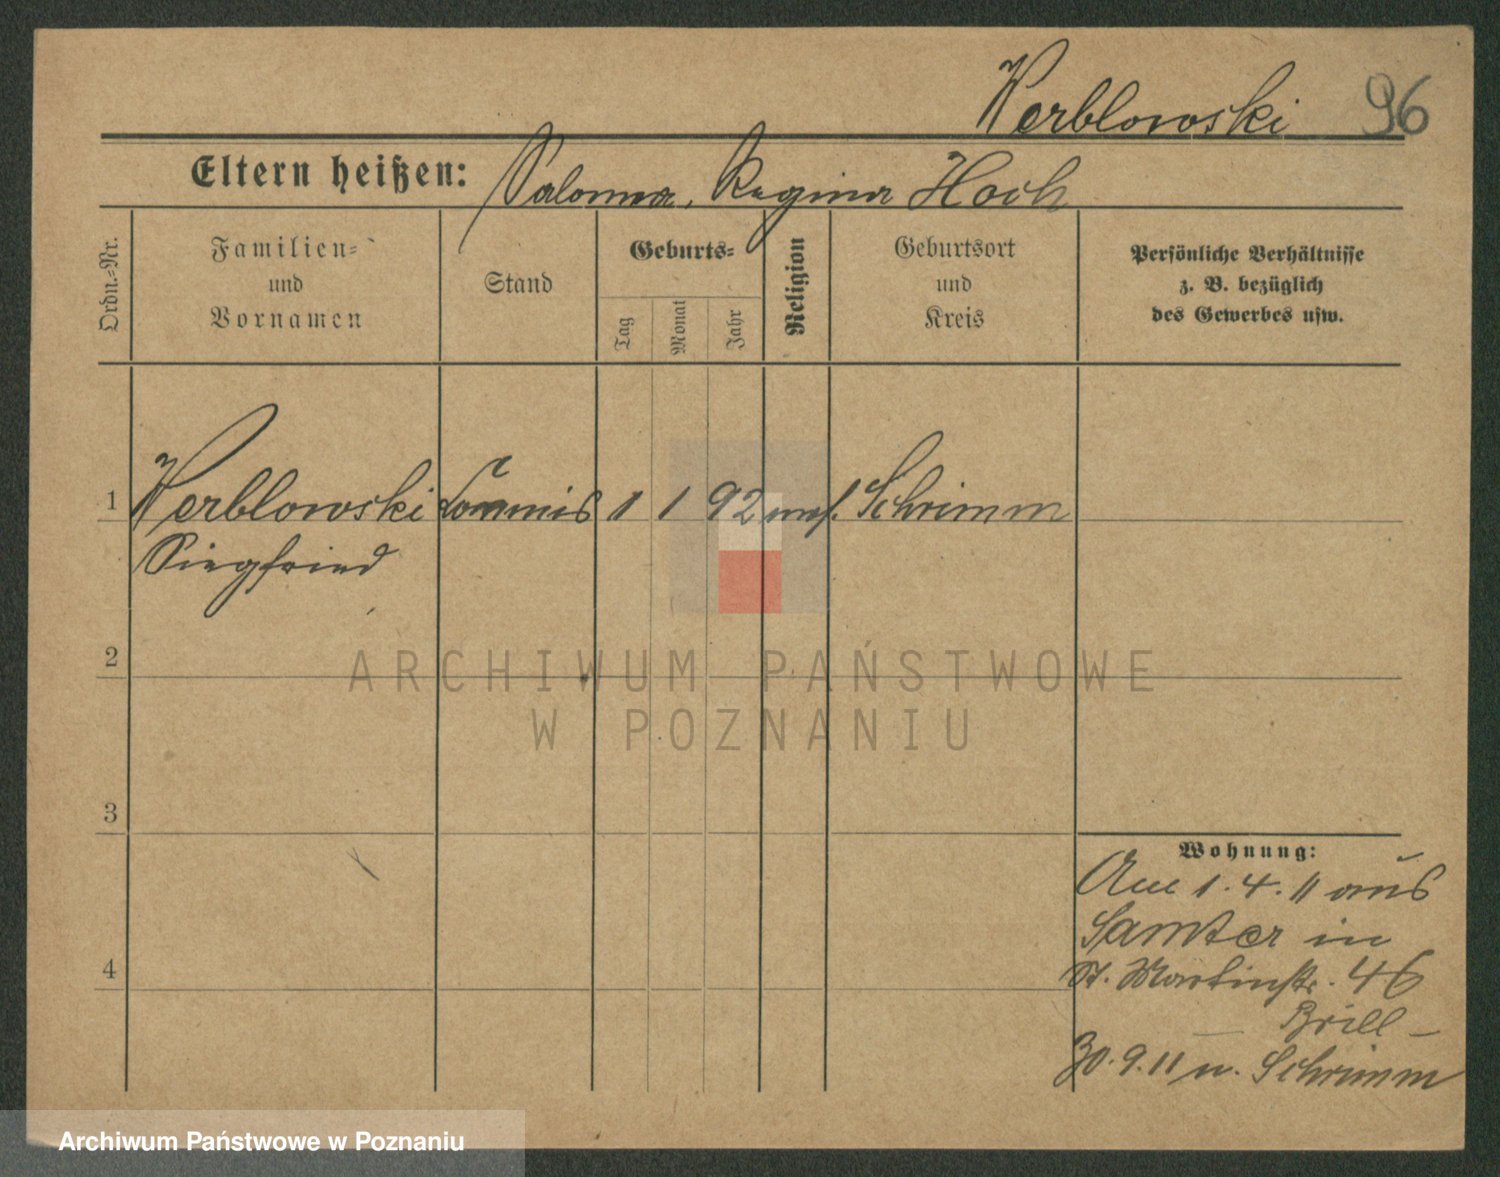 Werblowski 96
Eltern heißen: Saloma, Regina Hoch
Ordn.-Nr.
Familien-
und
Vornamen
Stand
Geburts-
Tag
Monat
Jahr
Religion
Geburtsort
und
Kreis
Persönliche Verhältnisse
z. B. bezüglich
des Gewerbes usw.
1 Werblowski Commis 1 1 92 mos. Schrimm
Siegfried
2
ARCHIWUM PAŃSTWOWE
W POZNANIU
3
Wohnung:
Am 1. 4. 11 aus
Samter in
St. Martinstr. 46
4
— Brill —
30. 9. 11 n. Schrimm
Archiwum Państwowe w Poznaniu